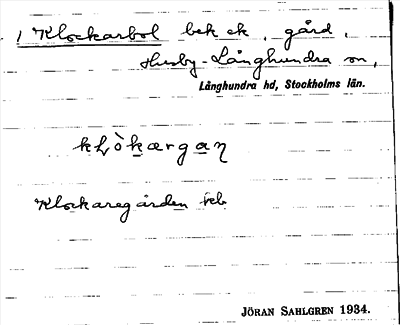 1 Klockarbol bek ek, gård,
Husby-Långhundra sn,
Långhundra hd, Stockholms län.
kḷò̀kærgaɳ
Klockaregården rkb
JÖRAN SAHLGREN 1934.